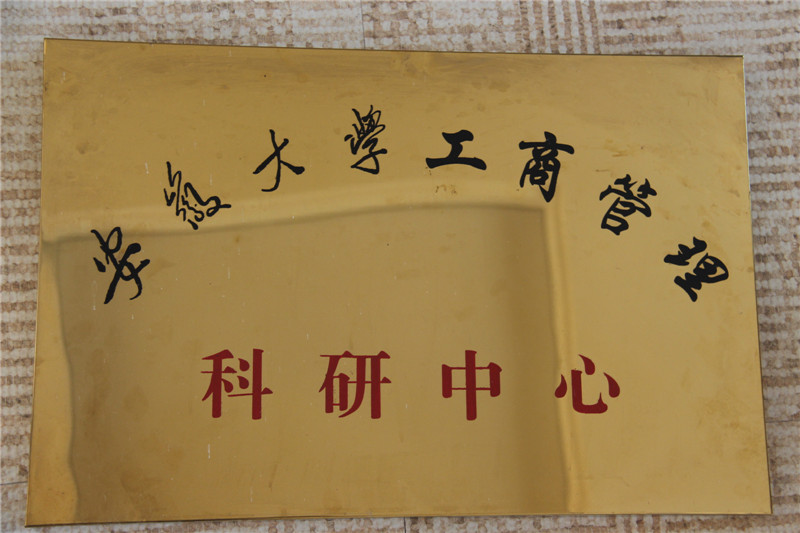 安徽大學工商管理
科研中心